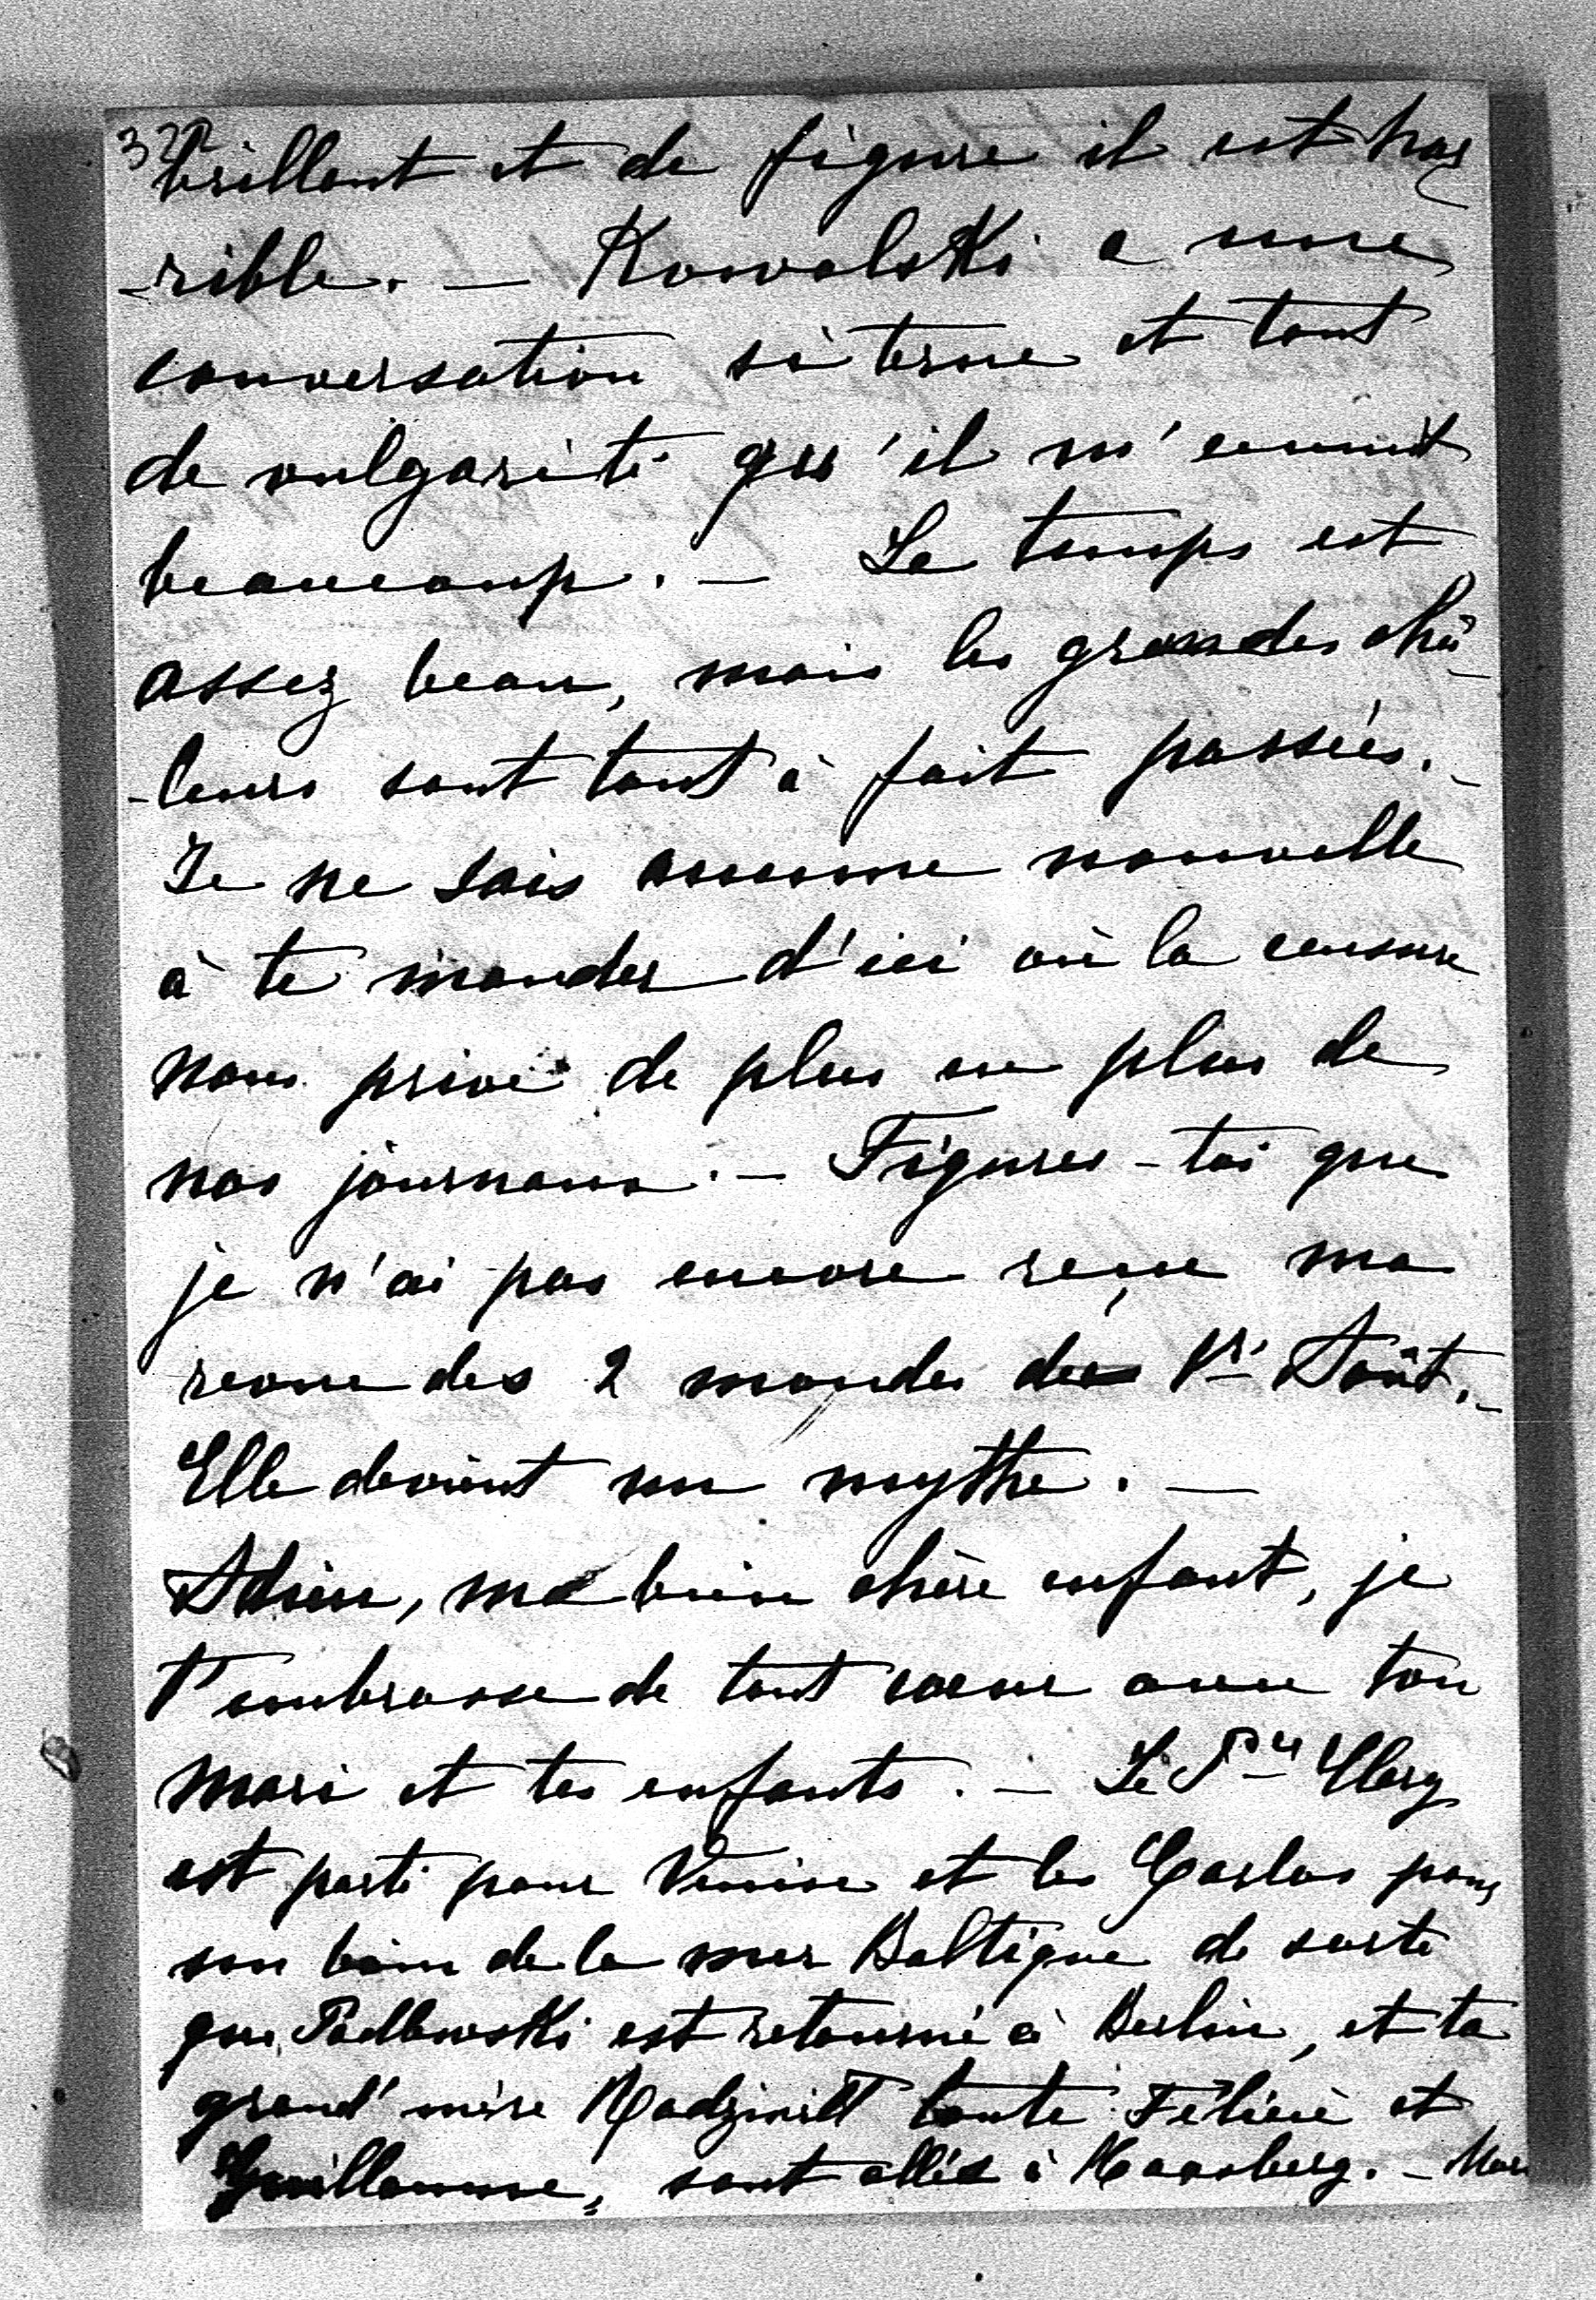 322
brillant et de figure il est hor
-rible. — Kowalski a une
conversation si terne et tant
de vulgarité qu'il m'ennuit
beaucoup. — Le temps est
assez beau, mais les grandes cha
-leurs sont tout à fait passées. -
Je ne sais aucune nouvelle
à te mander d'ici où la censure
nous prive de plus en plus de
nos journaux. — Figures-toi que
je n'ai pas encore reçue ma
revue des 2 mondes des 1r Août. -
Elle devient un mythe. —
Adieu, ma bien chère enfant, je
t'embrasse de tout coeur avec ton
mari et tes enfants. — Le Pce Clary
est parti pour Venise et les Carlos pour
un bain de la mer Baltique de sorte
que Padlewski est retourné à Berlin, et ta
grand'mère Radziwill tante Félicie et
Guillaume, sont allés à . - Mon